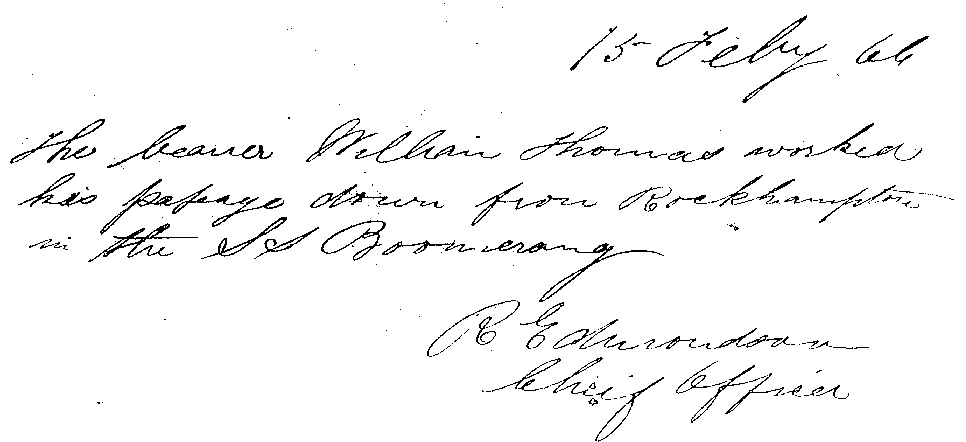 15 Feby 66
The bearer William Thomas worked
his passage down from Rockhampton
in the SS Boomerang
R Edmondson
Cheif Officer